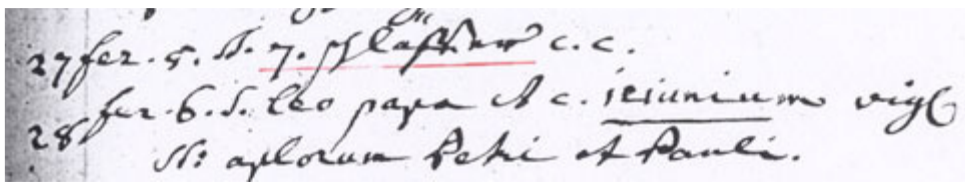 27 fer. 5. SS. 7. schläffer c. c.
28 fer. 6. S. Leo papa et c. ieiunium vigl
SS: aplorum Petri et Pauli.